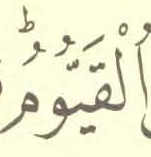 الْقَيُّومُؕ